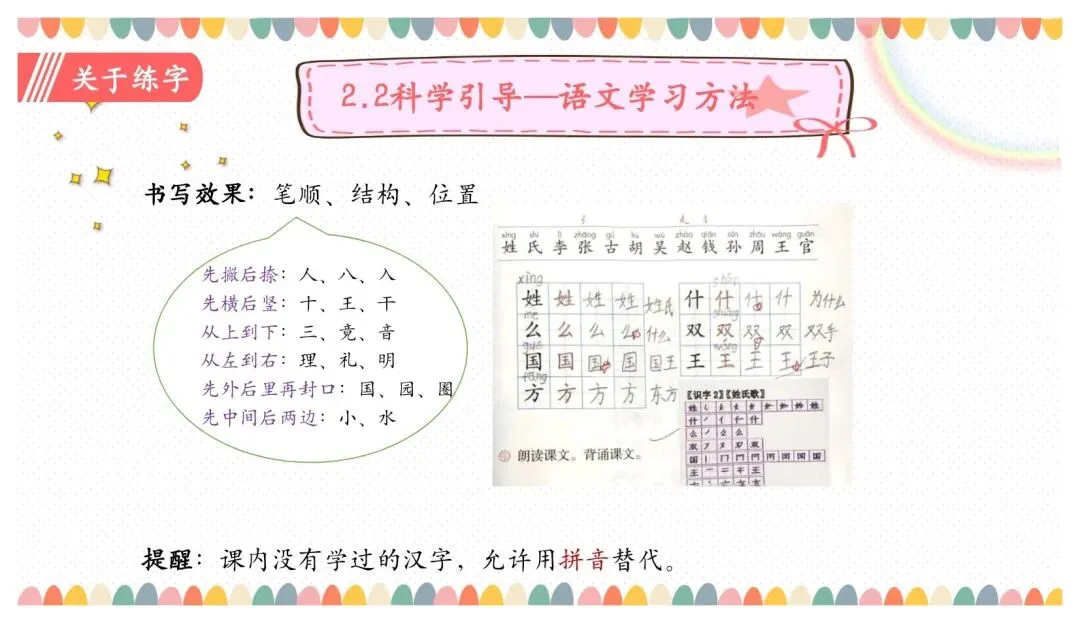 关于练字
2.2科学引导—语文学习方法
书写效果：笔顺、结构、位置
先撇后捺：人、八、入
先横后竖：十、王、干
从上到下：三、竟、音
从左到右：理、礼、明
先外后里再封口：国、园、圈
先中间后两边：小、水
xìng shì lǐ zhāng gǔ hú wú zhào qián sūn zhōu wáng guān
姓 氏 李 张 古 胡 吴 赵 钱 孙 周 王 官
xìng
姓 姓 姓 姓 姓氏 什 什 什 什 为什么
me shuāng
么 么 么 么 什么 双 双 双 双 双手
guó wáng
国 国 国 国 国王 王 王 王 王 王子
fāng
方 方 方 方 东方
【识字2】【姓氏歌】
姓
什
么
双
国
王
朗读课文。背诵课文。
提醒：课内没有学过的汉字，允许用拼音替代。